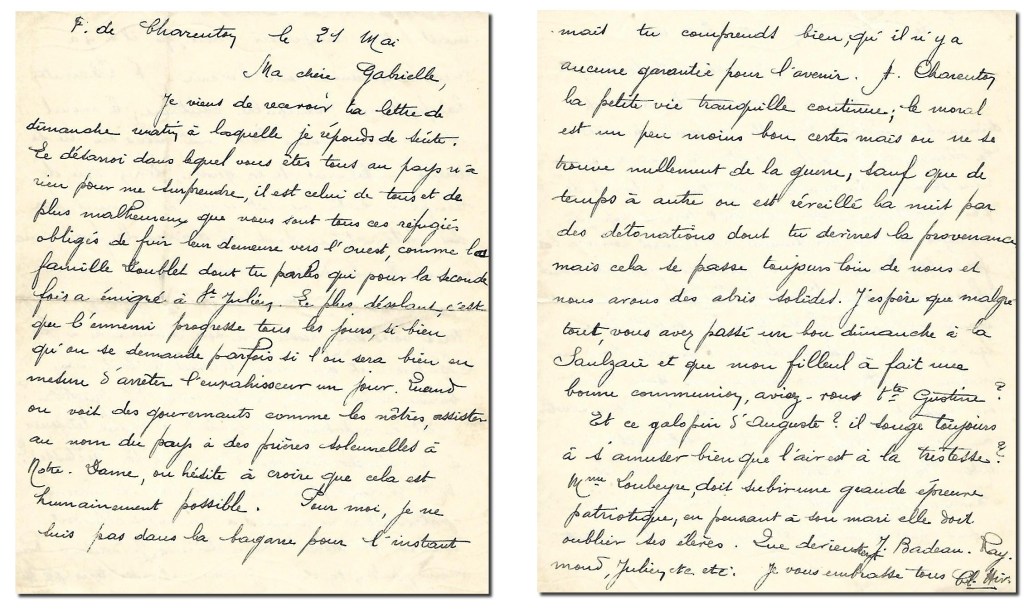 F. de Charenton le 21 Mai
Ma chère Gabrielle,
Je viens de recevoir ta lettre de
dimanche matin à laquelle je réponds de suite.
Le désarroi dans lequel vous êtes tous au pays n'a
rien pour me surprendre, il est celui de tous et de
plus malheureux que vous sont tous ces réfugiés
obligés de fuir leur demeure vers l'ouest, comme la
famille Doublet dont tu parles qui pour la seconde
fois a émigré à St Julien. Le plus désolant, c'est
que l'ennemi progresse tous les jours, si bien
qu'on se demande parfois si l'on sera bien en
mesure d'arrêter l'envahisseur un jour. Quand
on voit des gouvernants comme les nôtres, assister
au nom du pays à des prières solennelles à
Notre-Dame, on hésite à croire que cela est
humainement possible. Pour moi, je ne
suis pas dans la bagarre pour l'instant
mais tu comprends bien, qu'il n'y a
aucune garantie pour l'avenir. A Charenton
la petite vie tranquille continue; le moral
est un peu moins bon certes mais on ne se
trouve nullement de la guerre, sauf que de
temps à autre on est réveillé la nuit par
des détonations dont tu devines la provenance
mais cela se passe toujours loin de nous et
nous avons des abris solides. J'espère que malgré
tout, vous avez passé un bon dimanche à la
Saulzaie et que mon filleul à fait une
bonne communion, aviez-vous tte Gustine ?
Et ce galopin d'Auguste ? il songe toujours
à s'amuser bien que l'air est à la tristesse ?
Mme Loubeyre, doit subir une grande épreuve
patriotique, en pensant à son mari elle doit
oublier ses élèves. Que devient J. Badeau. Ray-
mond, Julien etc etc. Je vous embrasse tous